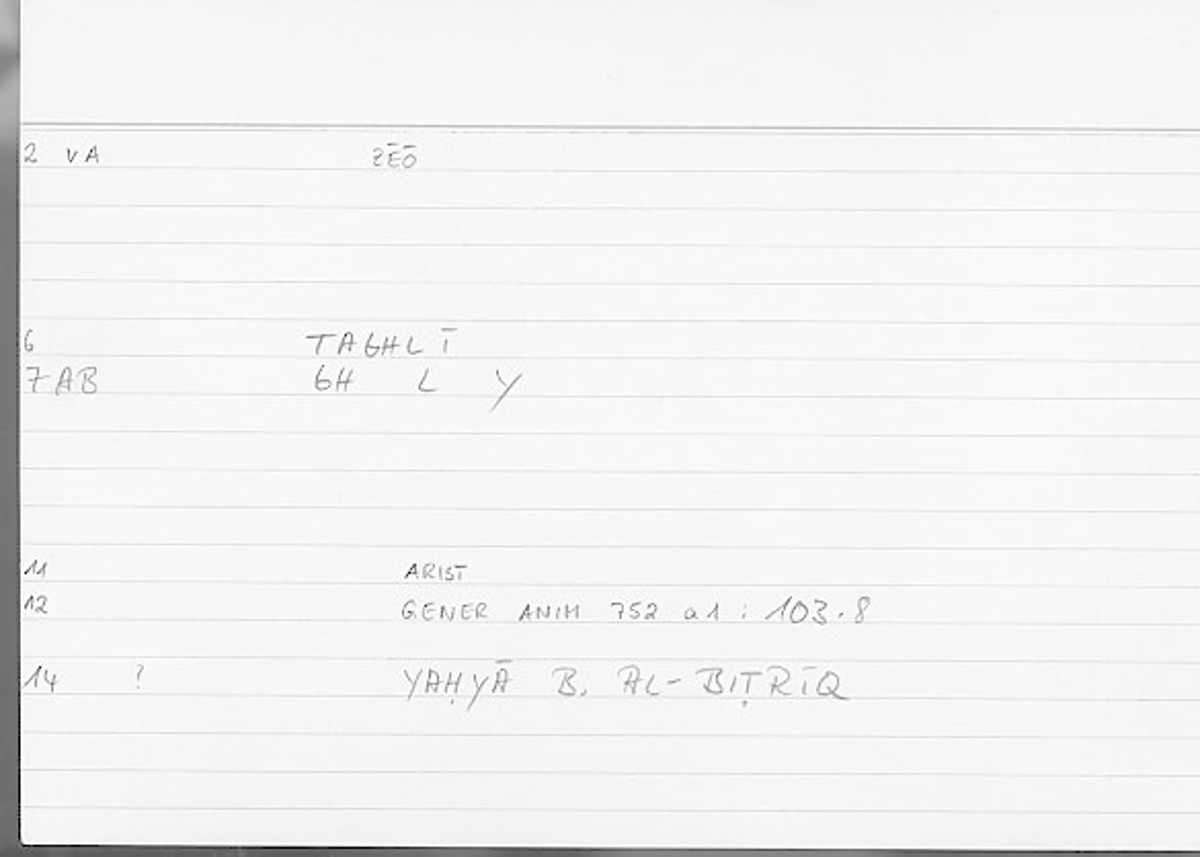 2 VA ZĒŌ
6 TAGHLĪ
7AB GH L Y
11 ARIST
12 GENER ANIM 752 a1 : 103.8
14 ? YAḤYĀ B. AL-BIṬRĪQ